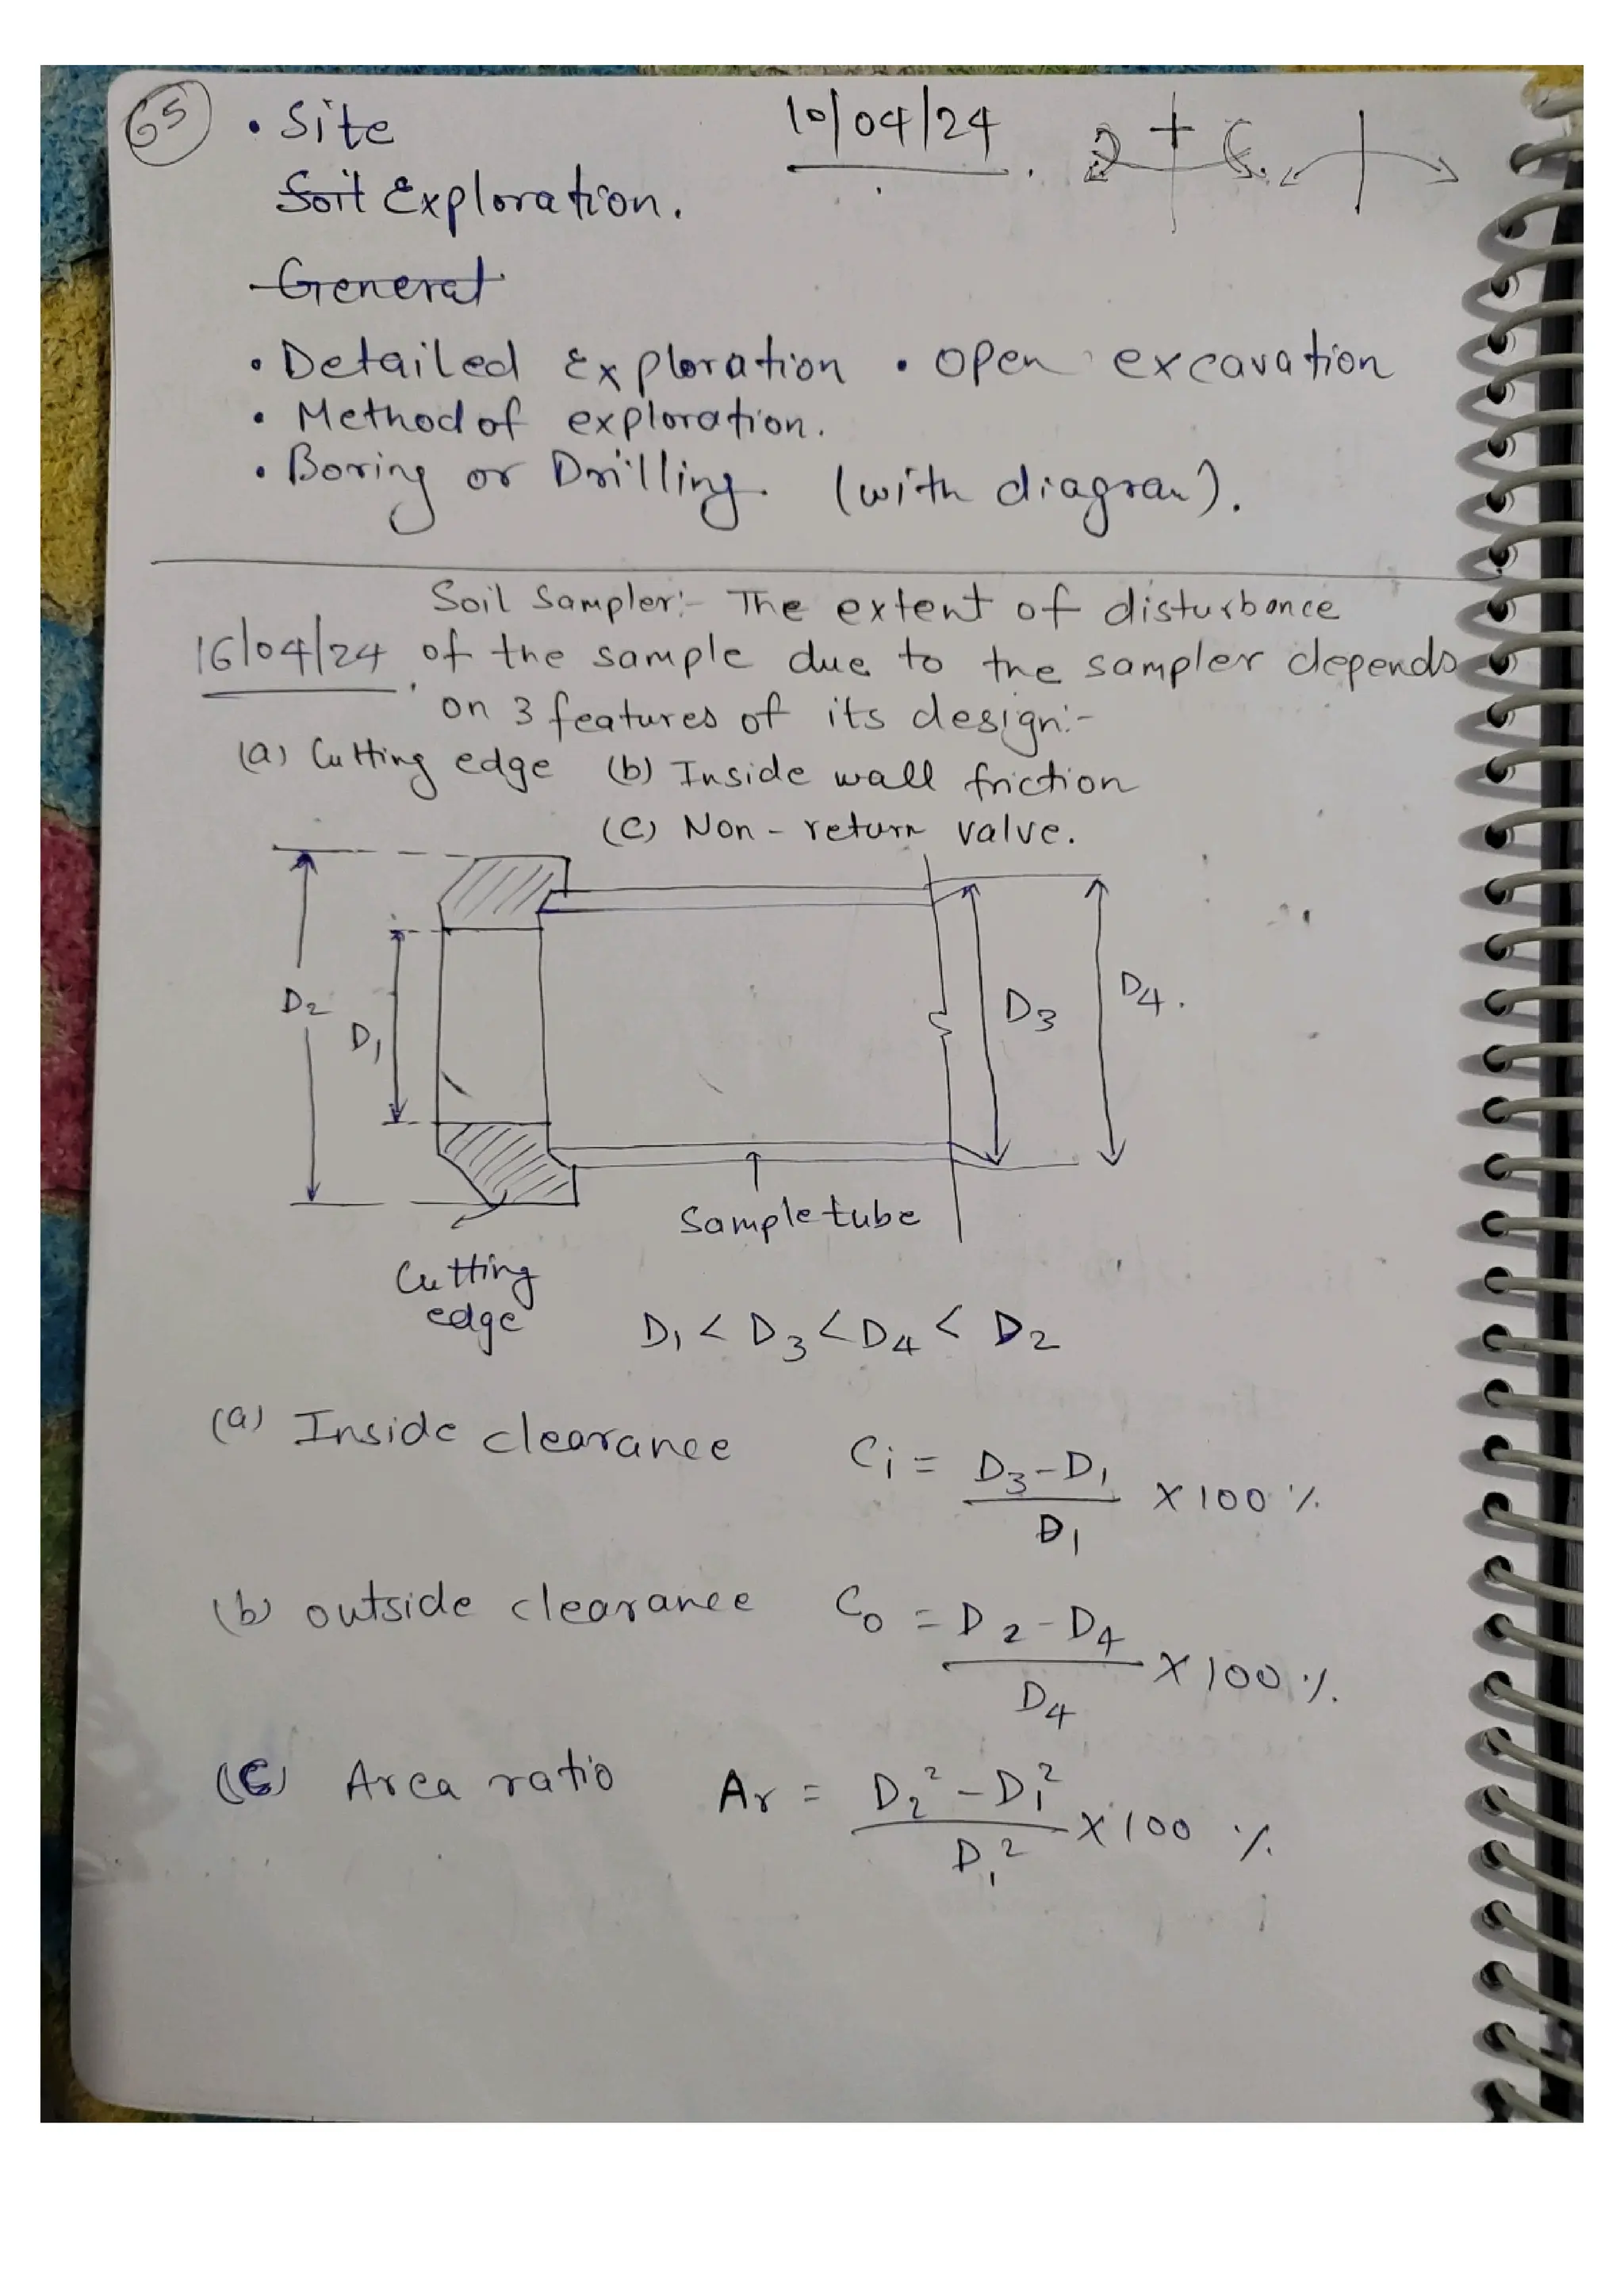 65
• Site 10/04/24.
Soil Exploration.
General
• Detailed Exploration • open excavation
• Method of exploration.
• Boring or Drilling. (with diagram).
Soil Sampler:- The extent of disturbance
16/04/24. of the sample due to the sampler depends
on 3 features of its design:-
(a) Cutting edge (b) Inside wall friction
(c) Non-return valve.
D2
D1
D3
D4.
Sample tube
Cutting
edge
D1 < D3 < D4 < D2
(a) Inside clearance Ci = D3-D1 / D1 × 100 %
(b) outside clearance Co = D2-D4 / D4 × 100 %.
(c) Area ratio Ar = D2² - D1² / D1² × 100 %